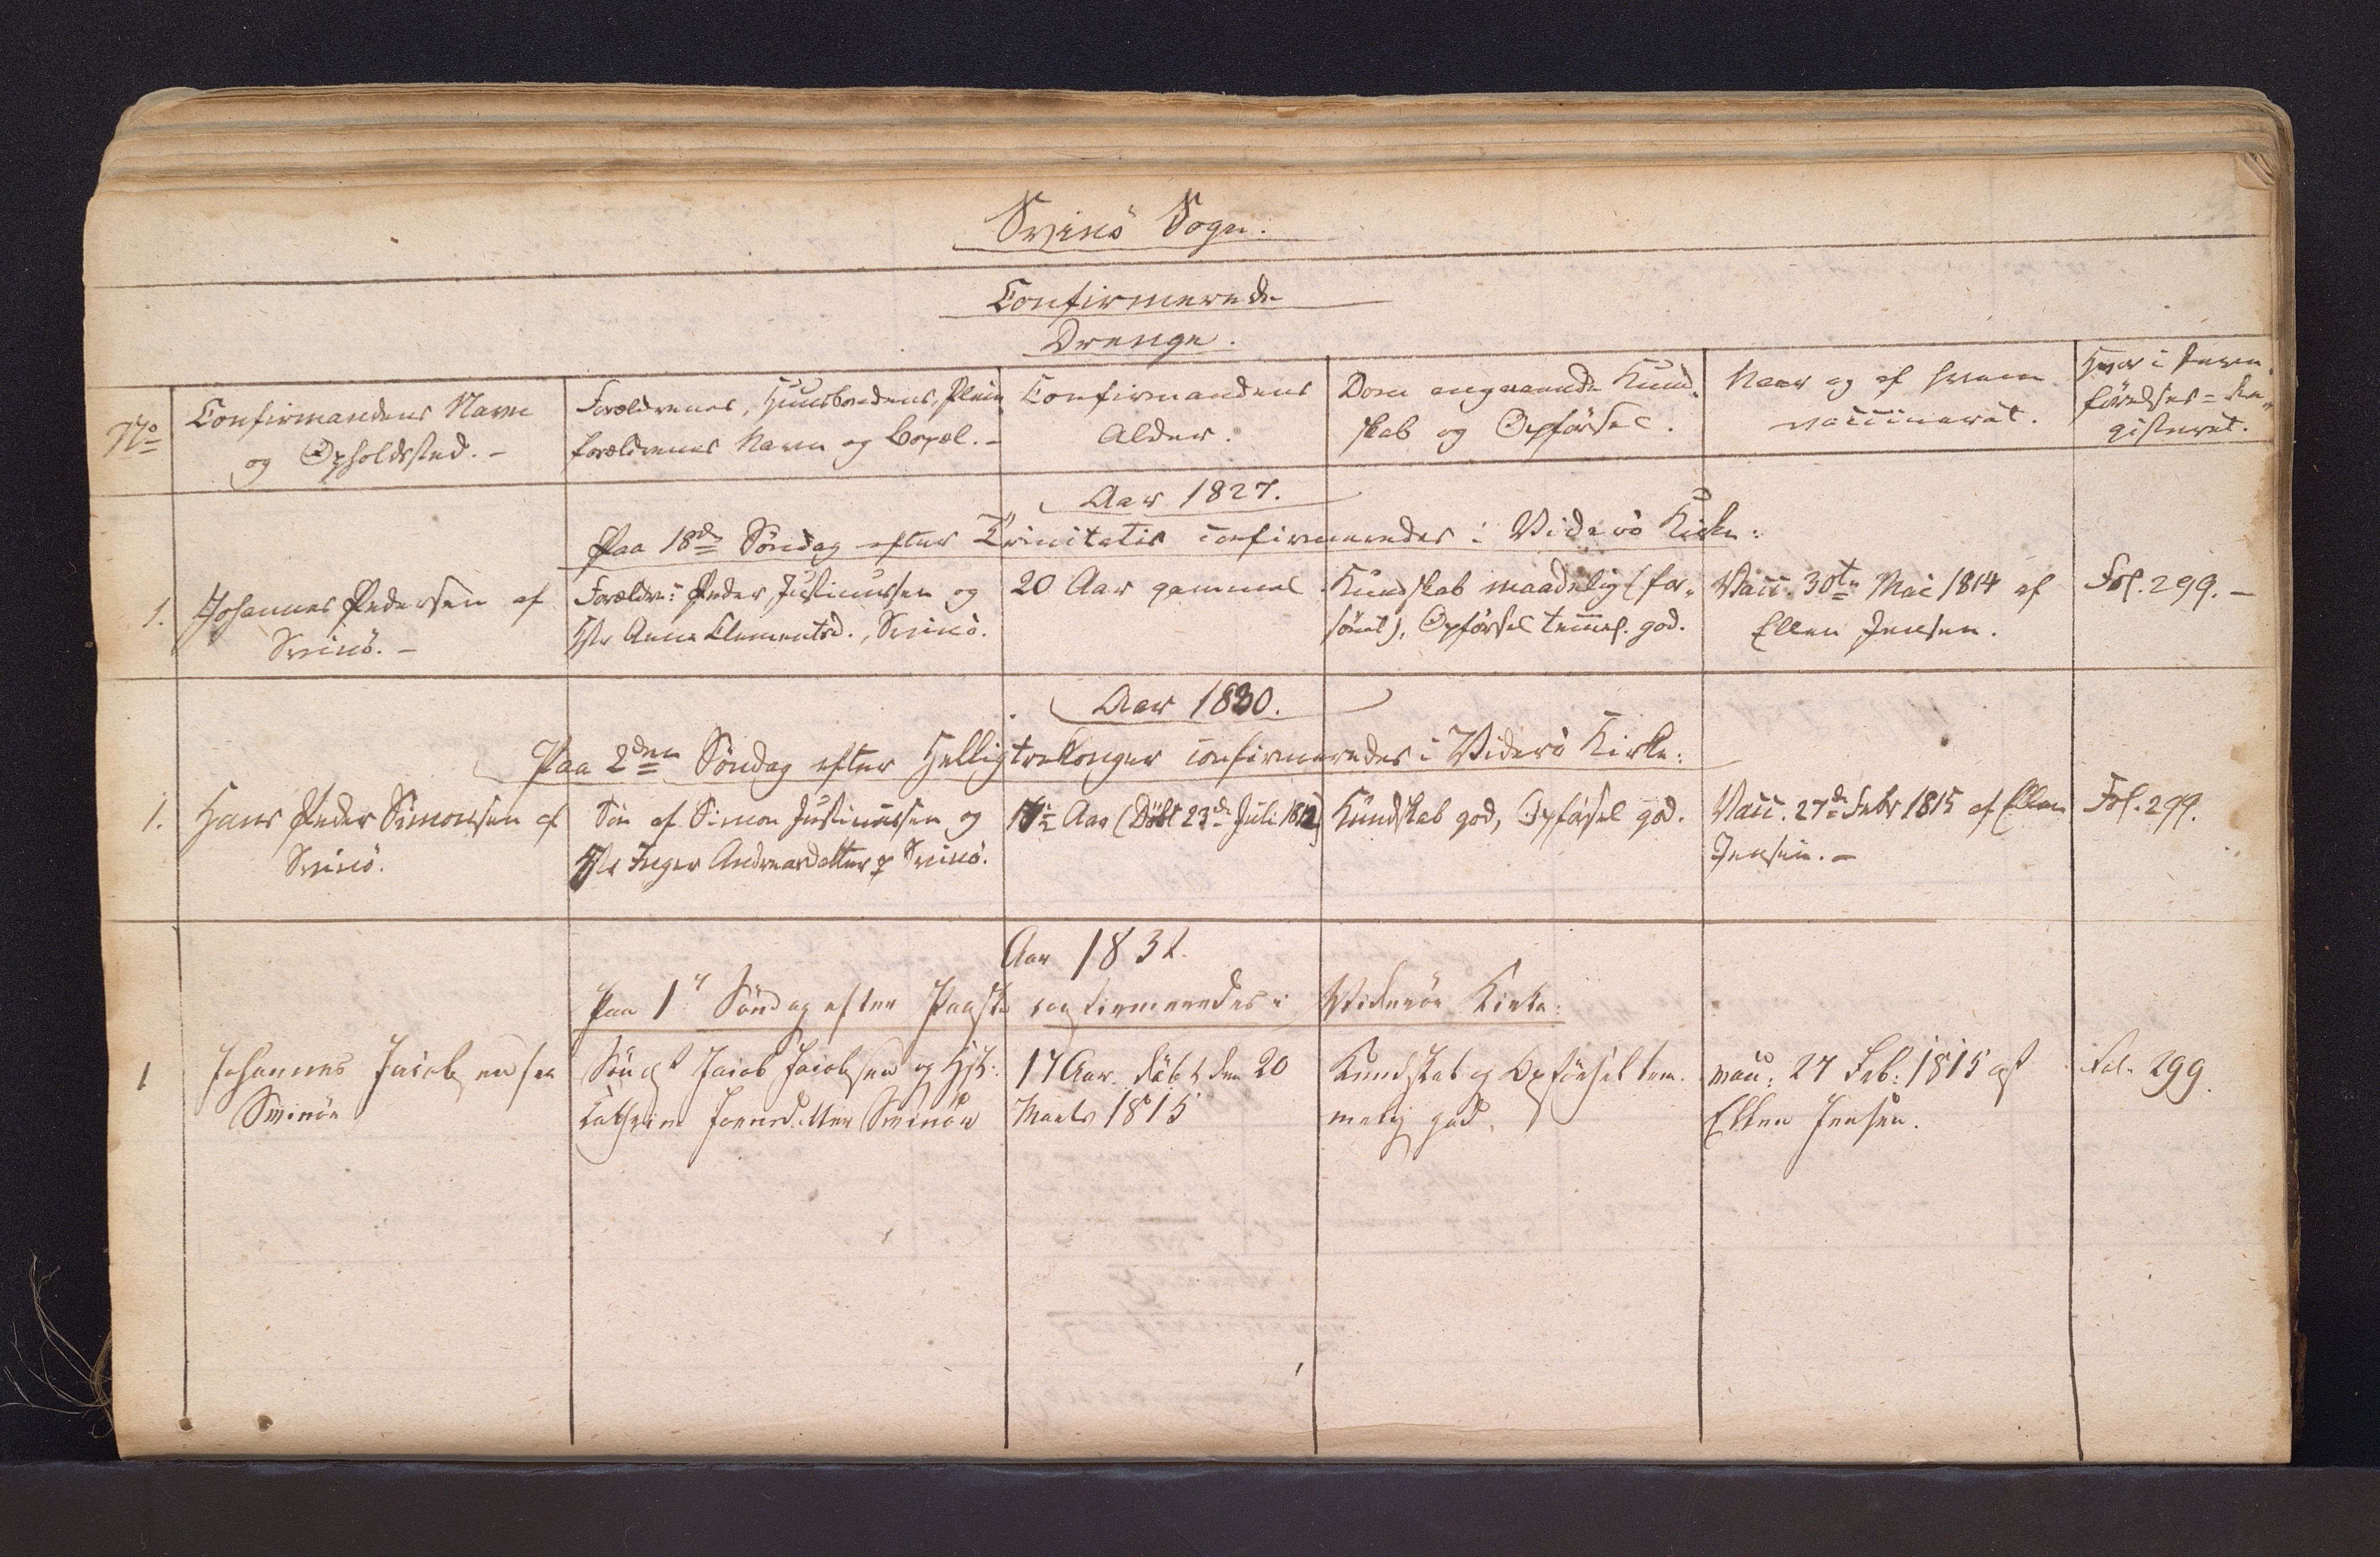 Svinö Sogn.
Confirmerede
Drenge.
No
Confirmandens Navn
og Opholdssted. -
Forældrenes, Huusbondens, Pleie
forældrenes Navn og Bopæl. -
Confirmandens
Alder.
Dom angaaende Kund-
skab og Opförsel.
Naar og af hvem
vaccineret.
Hvor i Jevn-
förelses=Re-
gisteret.
Aar 1827.
Paa 18de Söndag efter Trinitatis confirmeredes i Viderö Kirke:
1.
Johannes Pedersen af
Svinö. -
Forældre: Peder Justinussen og
Hr Anna Clementsd., Svinö.
20 Aar gammel
Kundskab maadelig (for-
sömt), Opförsel temmel. god.
Vacc. 30te Mai 1814 af
Ellen Jensen.
Fol. 299. -
Aar 1830.
Paa 2den Söndag efter Helligtrekonger confirmeredes i Viderö Kirke:
1.
Hans Peder Simonsen af
Svinö.
Sön af Simon Justinussen og
Hr Inger Andreasdatter p Svinö.
17½ Aar (Döbt 23de Juli 1812)
Kundskab god, Opförsel god.
Vacc. 27de Febr 1815 af Ellen
Jensen. -
Fol. 299.
Aar 1832.
Paa 1ste Söndag efter Paaske confirmeredes i Videröe Kirke:
1
Johannes Jacobsen fra
Svinöe
Sön af Jacob Jacobsen og Hst:
Cathrine Joensdatter Svinöe
17 Aar. döbt den 20
Marts 1815
Kundskab og Opförsel tem-
melig god.
vacc: 27 Feb: 1815 af
Ellen Jensen.
Fol. 299.